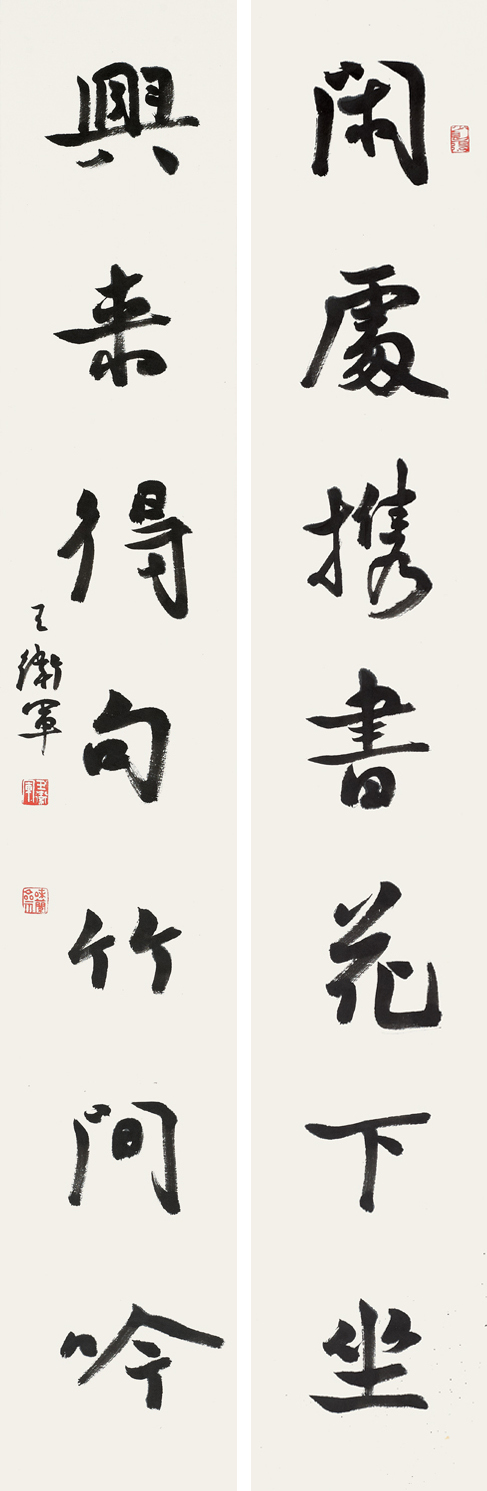 閑處携書花下坐
興来得句竹間吟
王衛軍